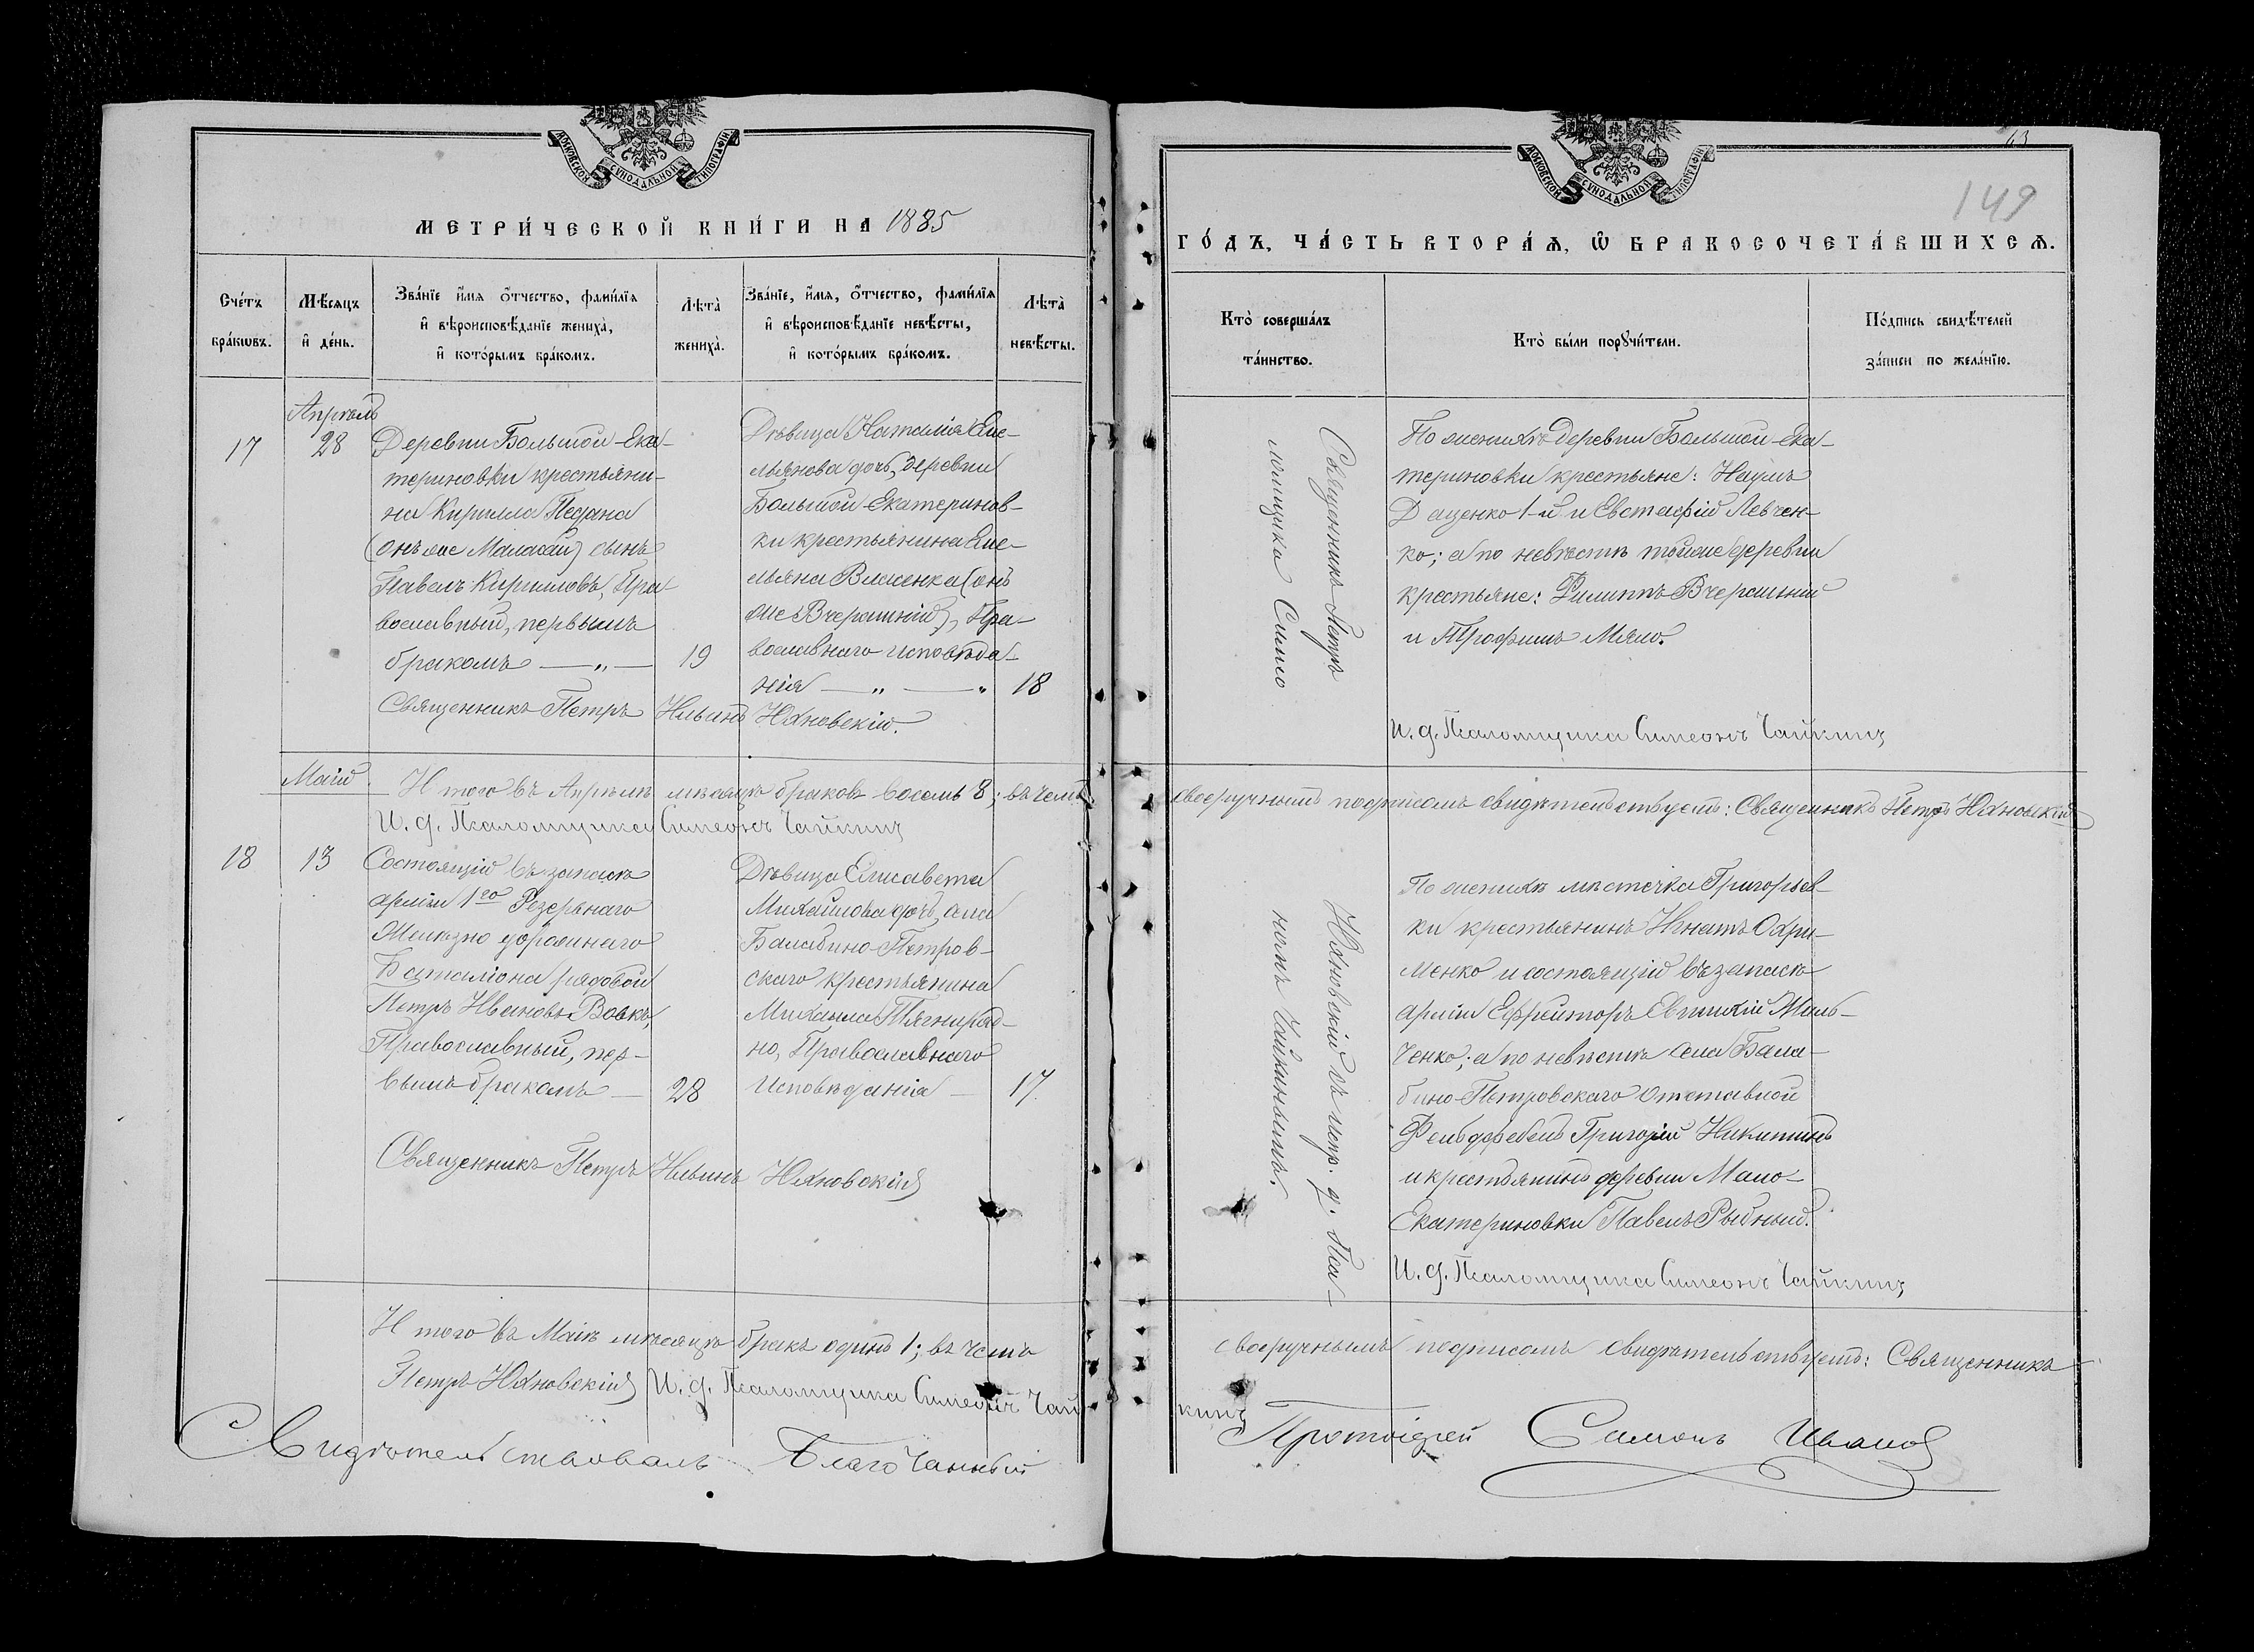 МОСКОВСКОЙ СѴНОДАЛЬНОЙ ТИПОГРАФІИ
МЕТРИ́ЧЕСКОЙ КНИ́ГИ НА 1885
Сче́тъ
бра́кѡвъ.
Мѣ́сяцъ
и҆ де́нь.
Зва́нїе и҆́мѧ ѻ҆́тчество, фами́лїѧ
и҆ вѣроисповѣ́данїе жениха̀,
и҆ кото́рымъ бра́комъ.
Лѣта̀
жениха̀.
Зва́нїе, и҆́мѧ, ѻ҆́тчество, фами́лїѧ
и҆ вѣроисповѣ́данїе невѣ́сты,
и҆ кото́рымъ бра́комъ.
Лѣта̀
невѣ́сты.
Апрѣль
17
28
Деревни Большой-Ека-
териновки крестьяни-
на Кирилла Педана
(онъ же Малахай) сынъ
Павелъ Кирилловъ, Пра-
вославный, первымъ
бракомъ — „ —
19
Дѣвица Наталія Еме-
льянова дочь, деревни
Большой-Екатеринов-
ки крестьянина Еме-
льяна Власенка (онъ
же Вчерашній), Пра-
вославнаго исповѣда-
нія — „ — „
18
Священникъ Петръ Ильинъ Юхновскій.
Маій
И того въ Апрѣлѣ мѣсяцѣ браковъ восемь 8; въ чемъ
И. д. Псаломщика Симеонъ Чайкинъ
18
13
Состоящій въ запасѣ
арміи 1го Резервнаго
Желѣзно дорожнаго
Баталіона рядовой
Петръ Ивановъ Вовкъ,
Православный, пер-
вымъ бракомъ —
28
Дѣвица Елисавета
Михайлова дочь, села
Балабино-Петров-
скаго крестьянина
Михаила Тягниряд-
но, Православнаго
Исповѣданія —
17
Священникъ Петръ Ильинъ Юхновскій
И того въ Маіѣ мѣсяцѣ бракъ одинъ 1; въ чемъ
Петръ Юхновскій И. д. Псаломщика Симеонъ Чай
Свидѣтельствовалъ Благочинный
МОСКОВСКОЙ СѴНОДАЛЬНОЙ ТИПОГРАФІИ
63
149
ГО́ДЪ, ЧА́СТЬ ВТОРА́Ѧ, Ѽ БРАКОСОЧЕТА́ВШИХСѦ.
Кто̀ соверша́лъ
та́инство.
Кто̀ бы́ли порꙋчи́тели.
По́дпись свидѣ́телей
за́писи по жела́нїю.
Священникъ Петръ
Юхновскій съ испр. д. Пса-
ломщика Симео
номъ Чайкинымъ.
По женихѣ деревни Большой-Ека-
териновки крестьяне: Наумъ
Даценко 1-й и Евстафій Левчен-
ко; а по невѣстѣ тойже деревни
крестьяне: Филиппъ Вчерашній
и Трофимъ Мяло.
И. д. Псаломщика Симеонъ Чайкинъ
своеручнымъ подписомъ свидѣтельствуетъ: Священникъ Петръ Юхновскій
По женихѣ мѣстечка Григорьев-
ки крестьянинъ Игнатъ Охри-
менко и состоящій въ запасѣ
арміи Ефрейторъ Евтихій Миль-
ченко; а по невѣстѣ села Бала-
бино-Петровскаго Отставной
Фельдфебель Григорій Никитинъ
и крестьянинъ деревни Мало-
Екатериновки Павелъ Рыбный.
И. д. Псаломщика Симеонъ Чайкинъ
своеручнымъ подписомъ свидѣтельствуетъ: Священникъ
кинъ
Протоіерей Симонъ Ивановъ